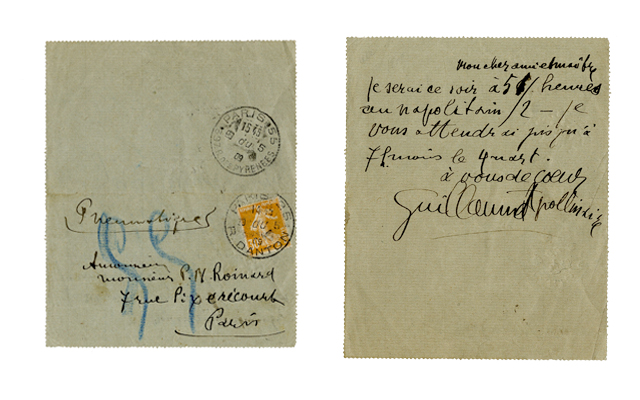 PARIS 55
PYRENEES
Pneumatique
PARIS
R. DANTON
55
monsieur P. N. Roinard
7 rue Pixérécourt
Paris
mon cher ami et maître
je serai ce soir à 5 h heures
au napolitain 1/2 – je
vous attendrai jusqu'à
7 h mais le quart.
à vous de cœur
Guillaume Apollinaire